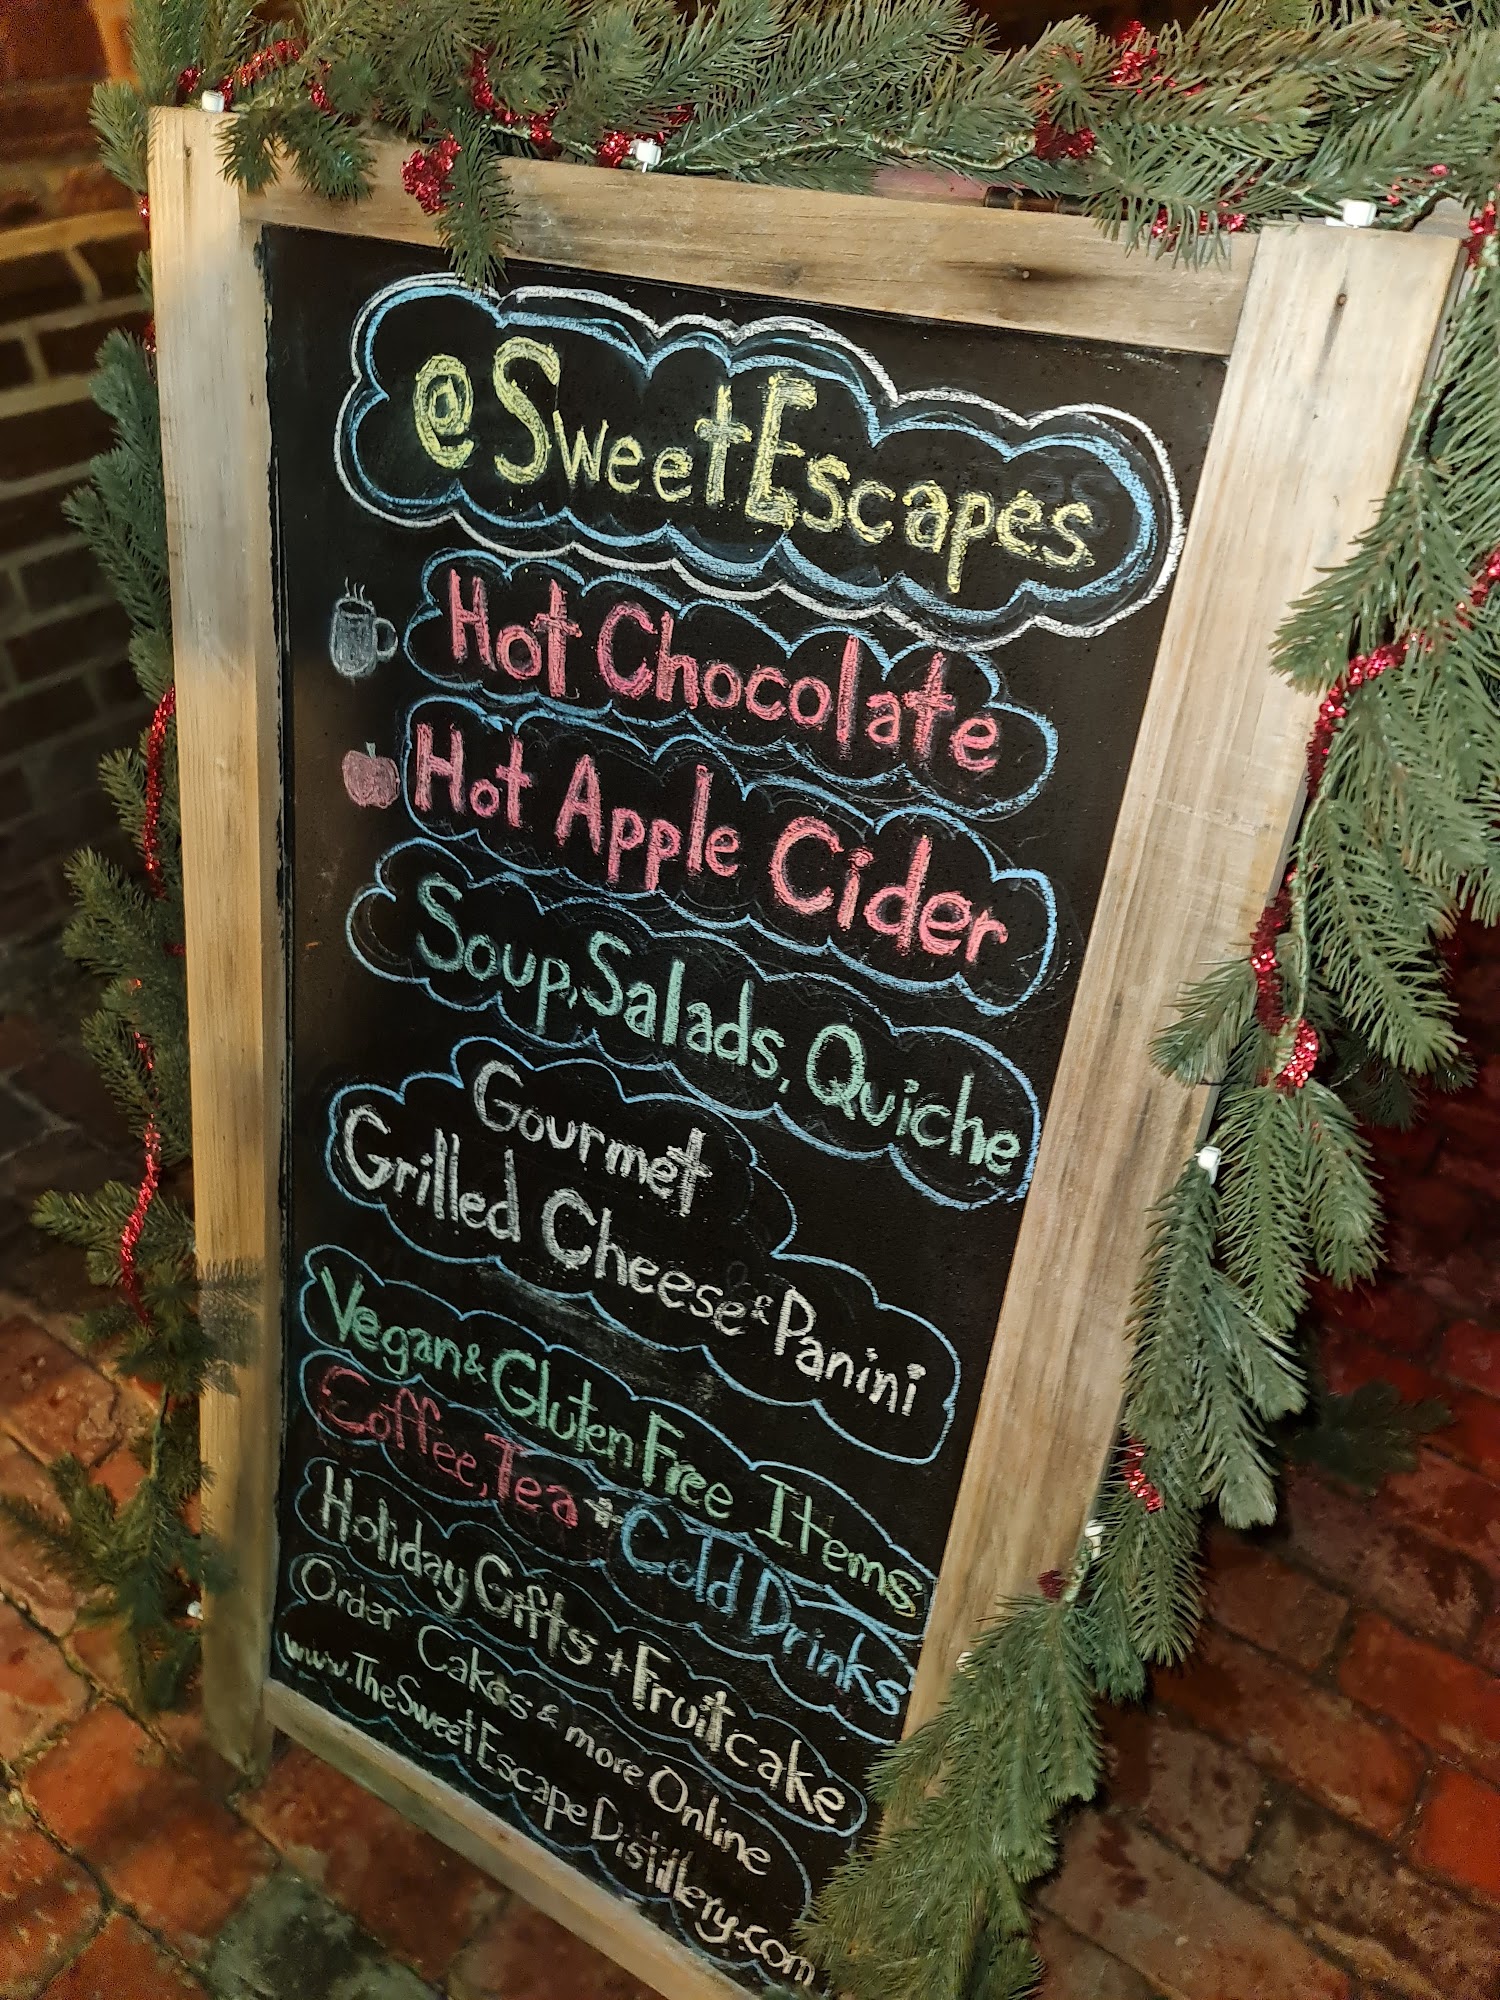 @SweetEscapes
Hot Chocolate
Hot Apple Cider
Soup, Salads, Quiche
Gourmet
Grilled Cheese & Panini
Vegan & Gluten Free Items
Coffee, Tea + Cold Drinks
Holiday Gifts + Fruitcake
Order Cakes & more Online
www.TheSweetEscapeDistillery.com